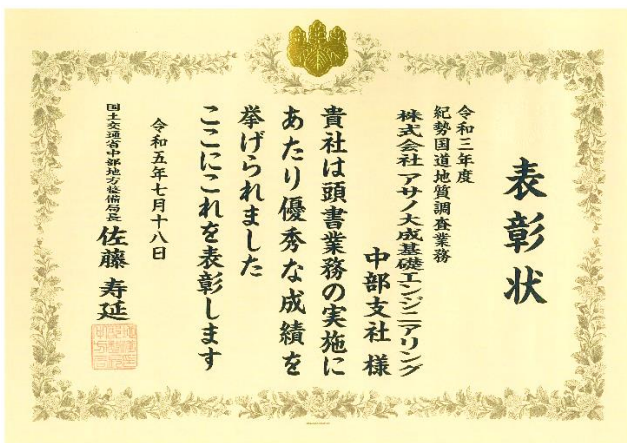 表彰状
令和三年度
紀勢国道地質調査業務
株式会社 アサノ大成基礎エンジニアリング
中部支社 様
貴社は頭書業務の実施に
あたり優秀な成績を
挙げられました
ここにこれを表彰します
令和五年七月十八日
国土交通省中部地方整備局長 佐藤 寿延